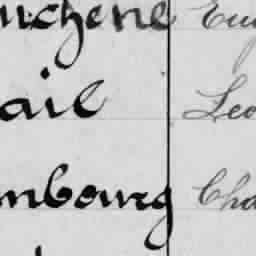 uchene Eug
ail Leo
mbourg Cha